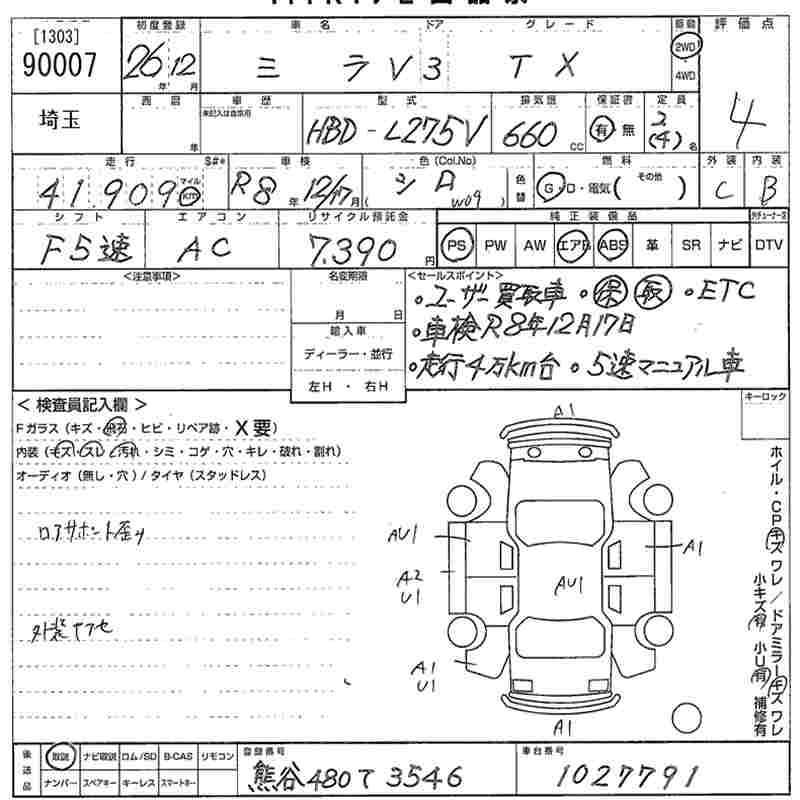 [1303]
90007
初度登録 車名 ドア グレード 駆動 評価点
26年 12月 ミラV 3 TX 2WD・4WD 4
埼玉
車歴 型式 排気量 保証書 定員
未記入は自家用
年 HBD-L275V 660cc 有・無 2(4)名
走行 S#* 車検 色(Col.No) 燃料 外装 内装
41,909 マイル km R8年 12/17月 シロ (W09) 色替 G・D・電気( その他 ) C B
シフト エアコン リサイクル預託金 純正装備品
F5速 AC 7,390円 PS PW AW エアB ABS 革 SR ナビ DTV
<注意事項> 名変期限 <セールスポイント>
月 日
輸入車
ディーラー・並行
左H・右H
・ユーザー買取車 ・保 取 ・ETC
・車検R8年12月17日
・走行4万km台 ・5速マニュアル車
キーロック
<検査員記入欄>
Fガラス(キズ・飛石・ヒビ・リペア跡・X要)
内装(キズ・スレ・汚れ・シミ・コゲ・穴・キレ・破れ・割れ)
オーディオ(無し・穴)/タイヤ(スタッドレス)
ロアサポント歪ミ
外装ヤケセ
A1
AU1
A1
A2
U1
AU1
A1
U1
A1
ホイル・CPキズワレ/ドアミラーキズワレ
小キズ有 小U有 補修有
後送品 取説 ナビ取説 ロム/SD B-CAS リモコン
ナンバー スペアキー キーレス スマートキー
登録番号 熊谷480て3546
車台番号 1027791